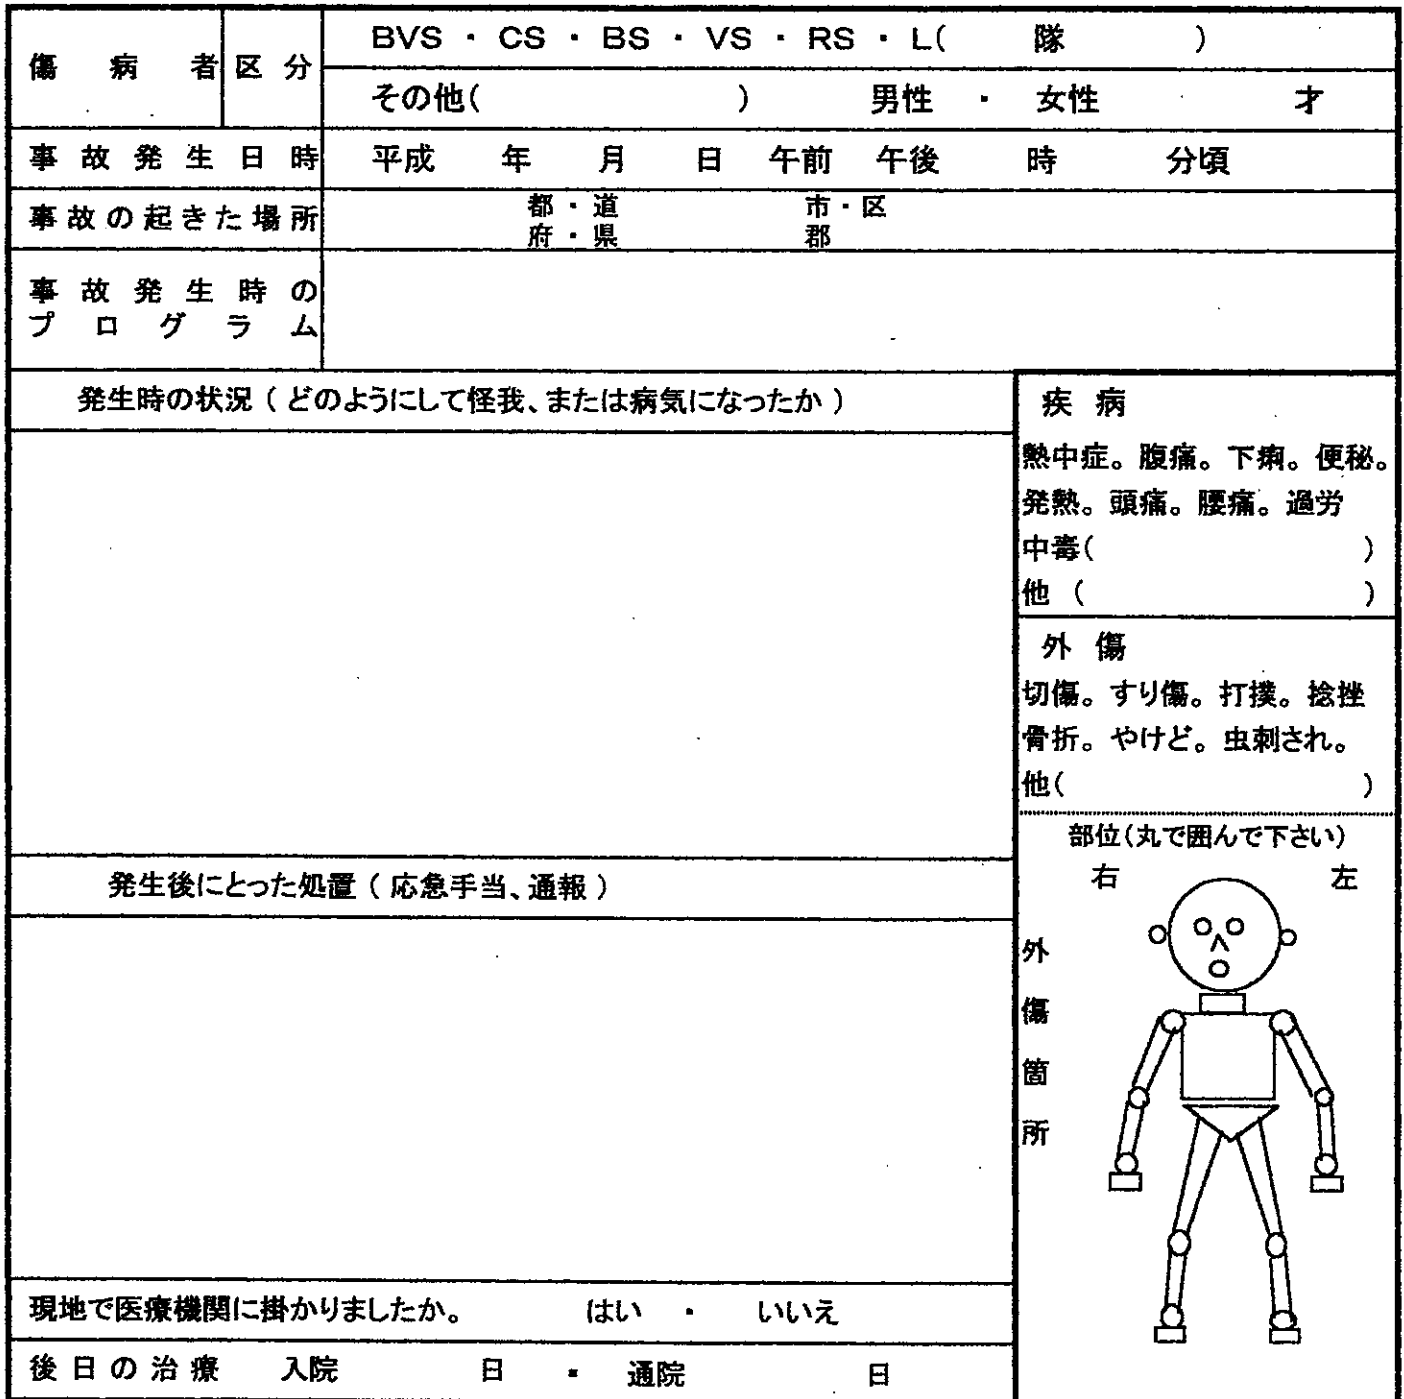 傷病者区分
BVS ・ CS ・ BS ・ VS ・ RS ・ L( 隊 )
その他( ) 男性 ・ 女性 才
事故発生日時 平成 年 月 日 午前 午後 時 分頃
事故の起きた場所 都・道 市・区
府・県 郡
事故発生時の
プログラム
発生時の状況(どのようにして怪我、または病気になったか)
疾病
熱中症。腹痛。下痢。便秘。
発熱。頭痛。腰痛。過労
中毒( )
他( )
外傷
切傷。すり傷。打撲。捻挫
骨折。やけど。虫刺され。
他( )
部位(丸で囲んで下さい)
右 左
外傷箇所
発生後にとった処置(応急手当、通報)
現地で医療機関に掛かりましたか。 はい ・ いいえ
後日の治療 入院 日 ・ 通院 日